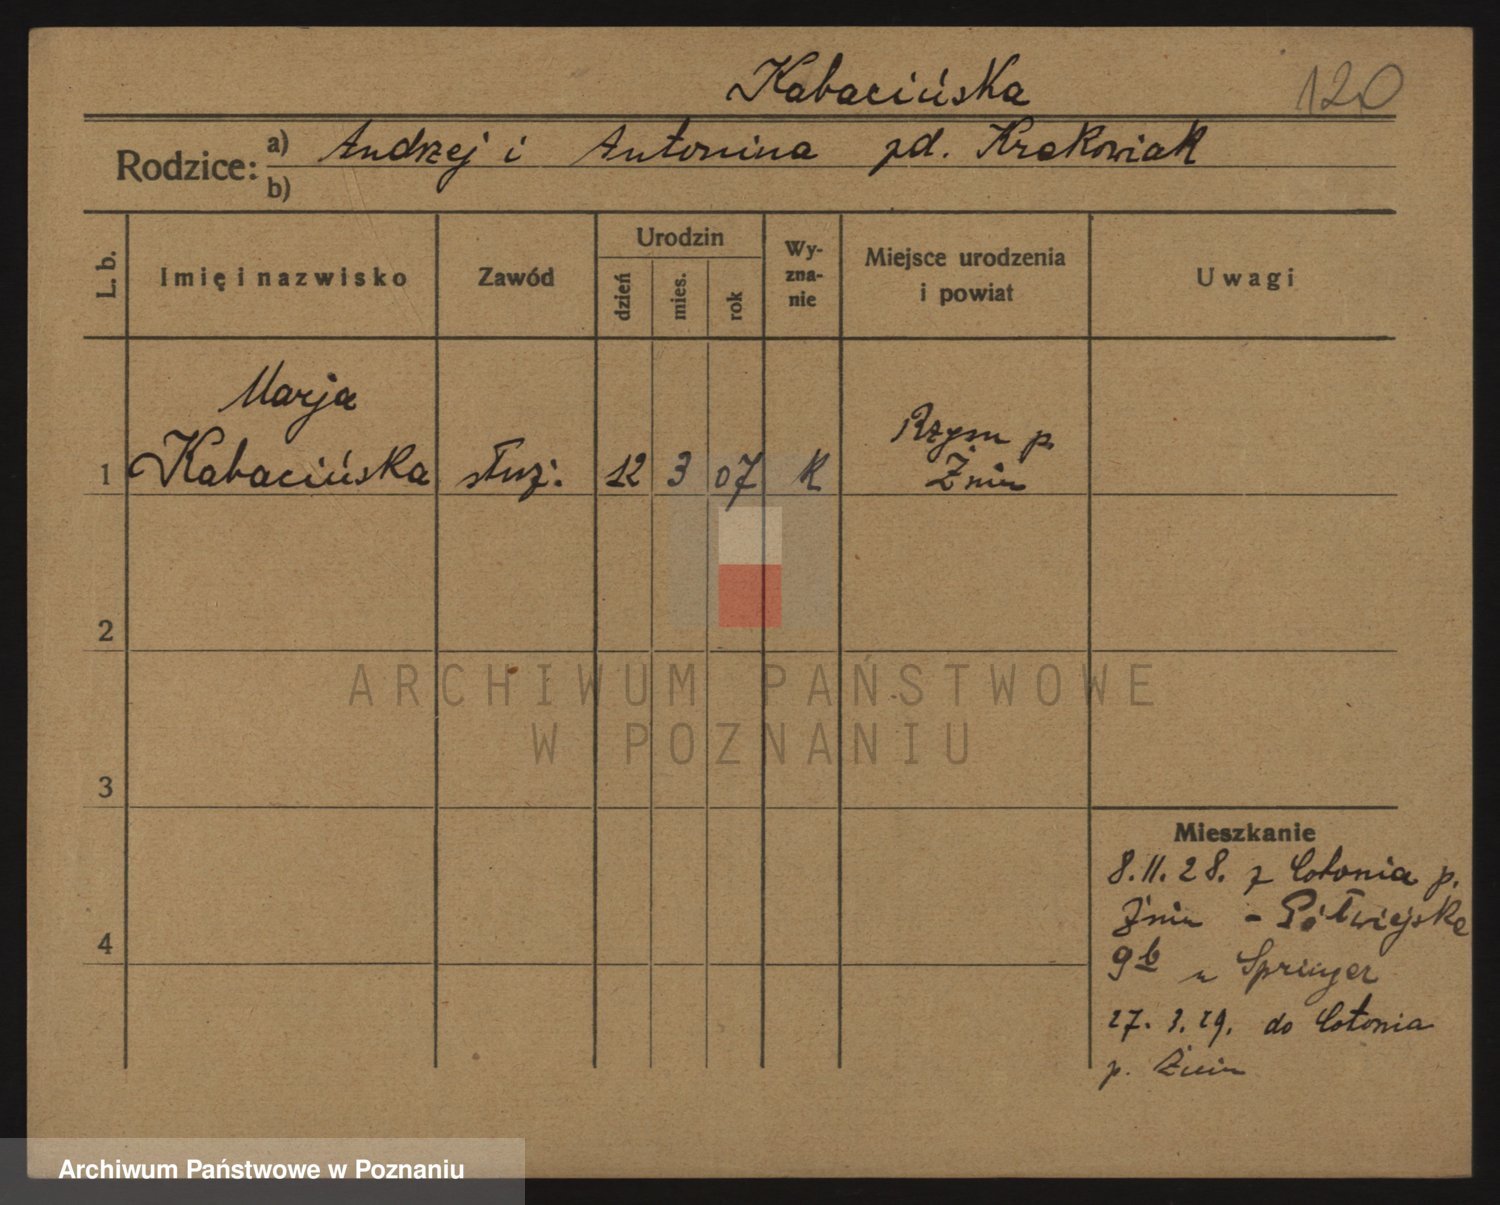 Kabacińska 120
Rodzice: a) Andrzej i Antonina zd. Krakowiak
b)
L. b. Imię i nazwisko Zawód Urodzin dzień mies. rok Wy-zna-nie Miejsce urodzenia i powiat Uwagi
Marja
1 Kabacińska służ: 12 3 07 k Rzym p.
Żnin
2
3
4
Mieszkanie
8.11.28. z Cotonia p.
Żnin - Półwiejska
9b u Springer
27.3.29. do Cotonia
p. Żnin
ARCHIWUM PAŃSTWOWE
W POZNANIU
Archiwum Państwowe w Poznaniu